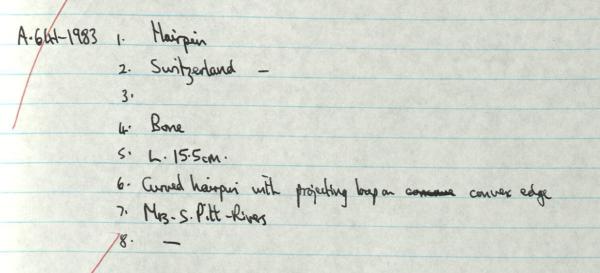 A.641-1983 1. Hairpin
2. Switzerland –
3.
4. Bone
5. L. 15.5cm.
6. Curved hairpin with projecting loop on concave convex edge
7. Mrs. S. Pitt-Rivers
8. –